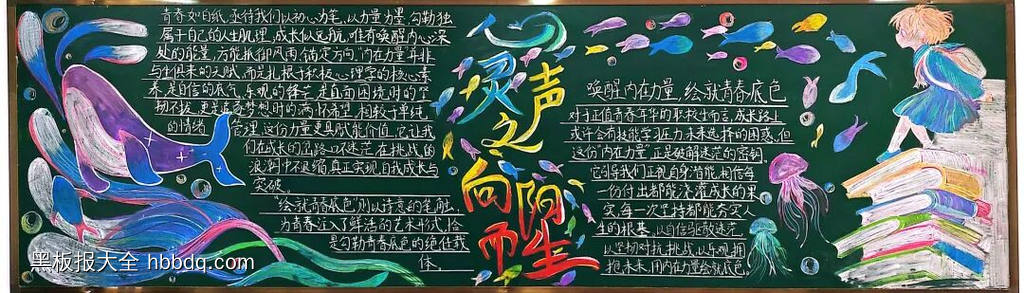 青春如白纸,亟待我们以初心为笔,以力量为墨,勾勒独
属于自己的人生肌理,成长似远航,唯有唤醒内心深
处的能量,方能抵御风雨,锚定方向."内在力量"并非
与生俱来的天赋,而是扎根于积极心理学的核心素
养,是自信的底气,乐观的锋芒,是直面困境时的坚
韧不拔,更是追逐梦想时的满怀希望,相较于单纯
的情绪管理,这份力量更具赋能价值,它让我
们在成长的岔路口不迷茫,在挑战的
浪潮中不退缩,真正实现自我成长与
突破。
"绘就青春底色"则以诗意的笔触,
为青春注入了鲜活的艺术形式,恰
是勾勒青春底色的绝佳载
体。
灵声之
向阳而生
唤醒内在力量,绘就青春底色
对于正值青春年华的职校生而言,成长路上
或许会有技能学习压力,未来选择的困惑,但
这份"内在力量"正是破解迷茫的密钥。
它引导我们正视自身潜能,相信每
一份付出都能浇灌成长的果
实,每一次坚持都能夯实人
生的根基,以自信驱散迷茫,
以坚韧对抗挑战,以乐观拥
抱未来,用内在力量绘就底色。
黑板报大全 hbbdq.com